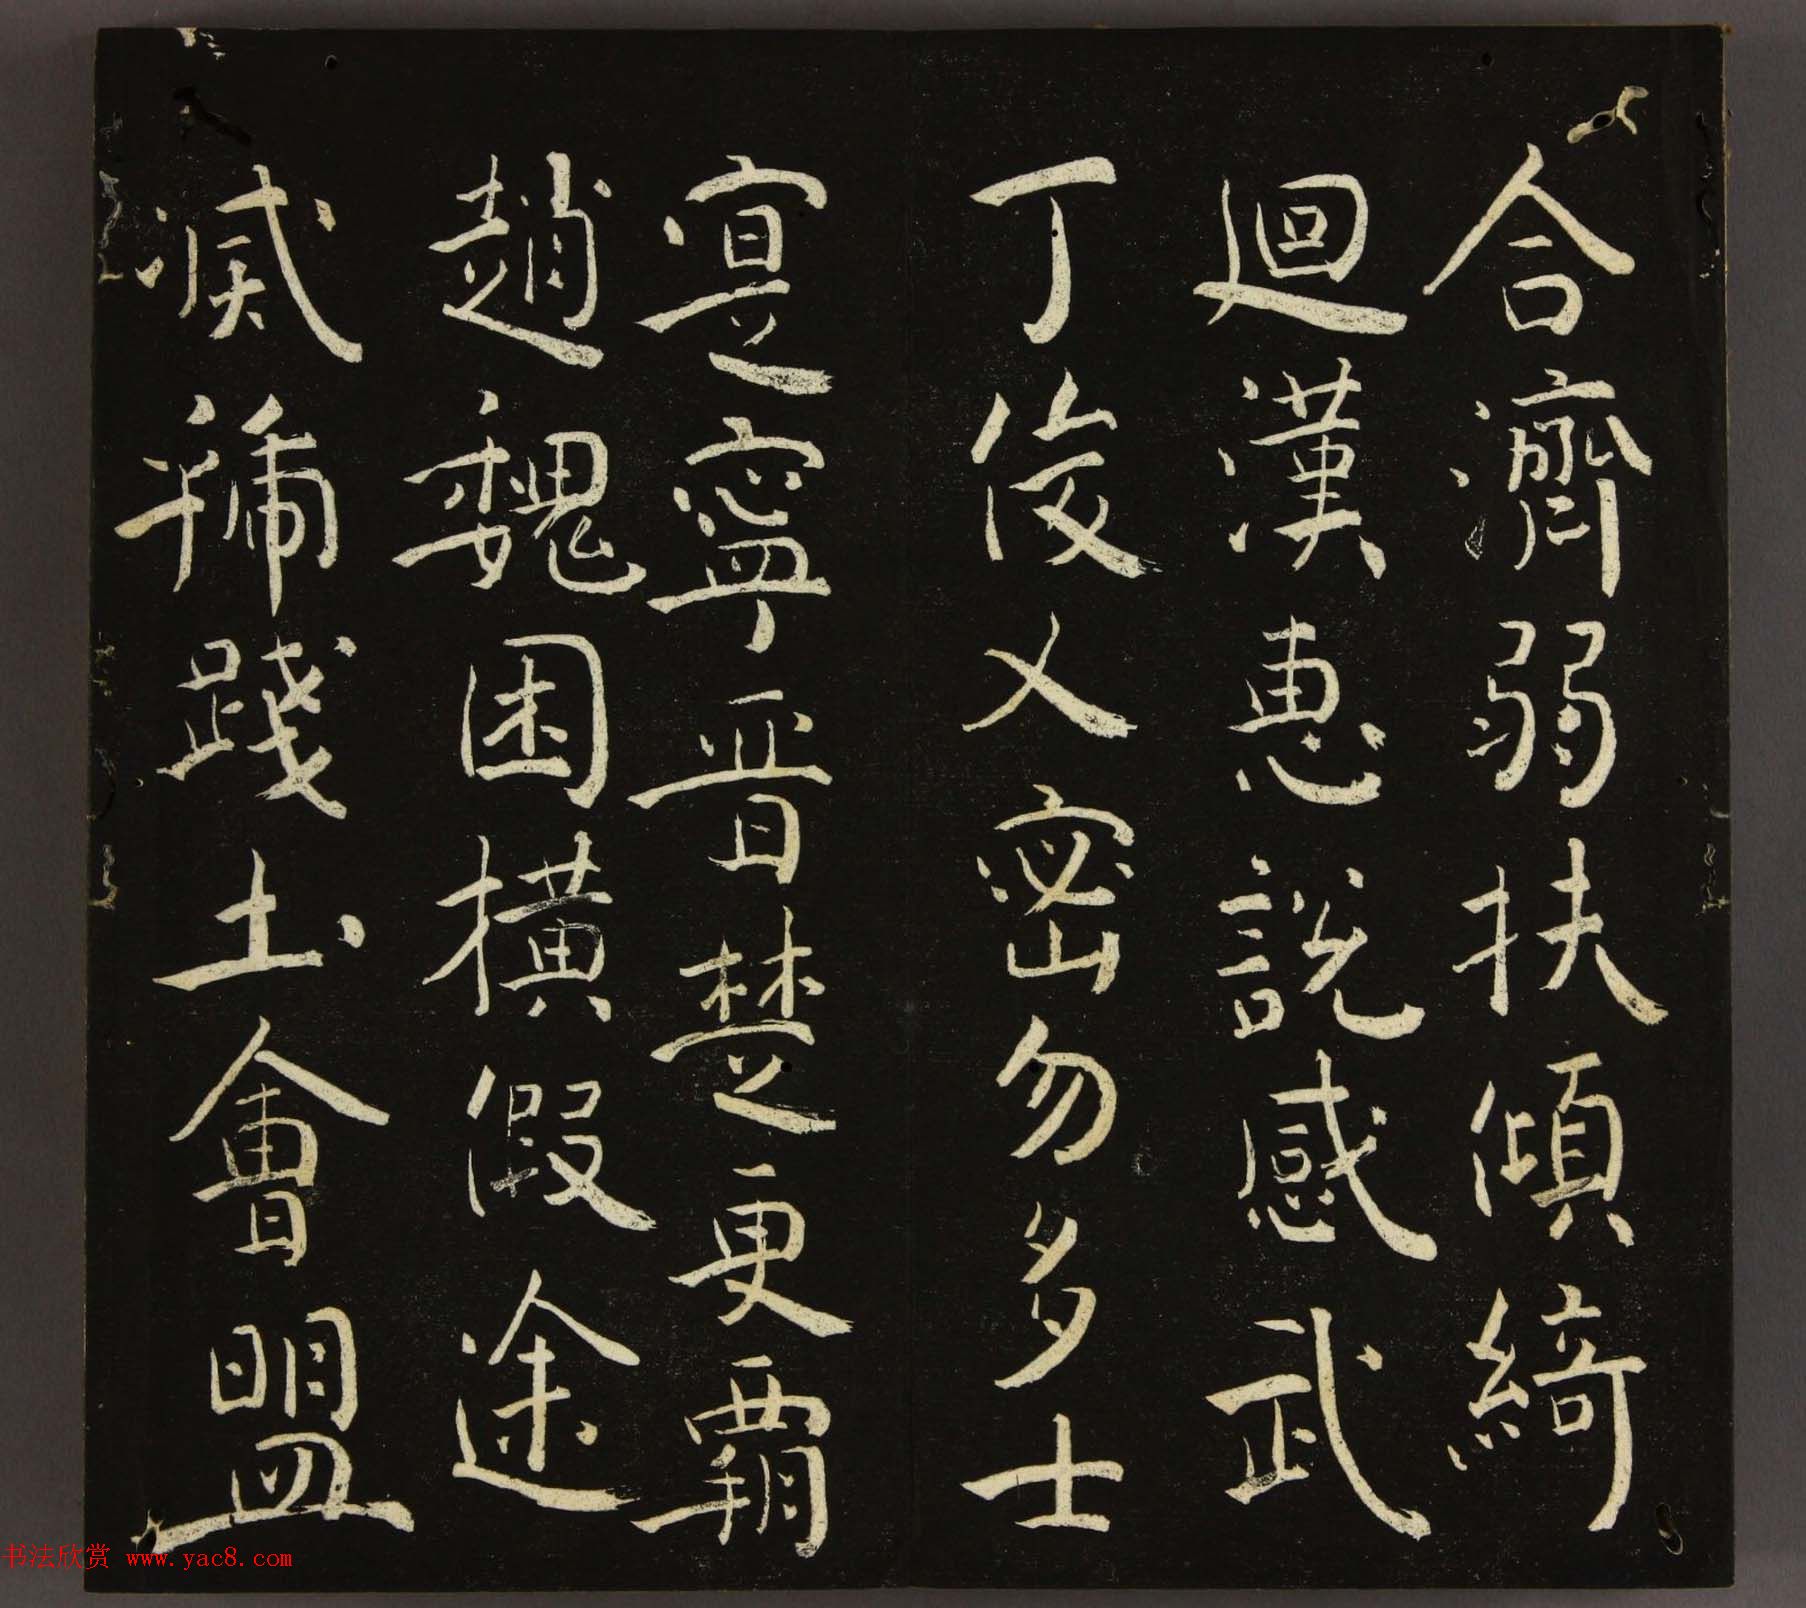 合濟弱扶傾綺
迴漢惠說感武
丁俊乂密勿多士
寔寧晉楚更霸
趙魏困橫假途
滅虢踐土會盟
书法欣赏 www.yac8.com